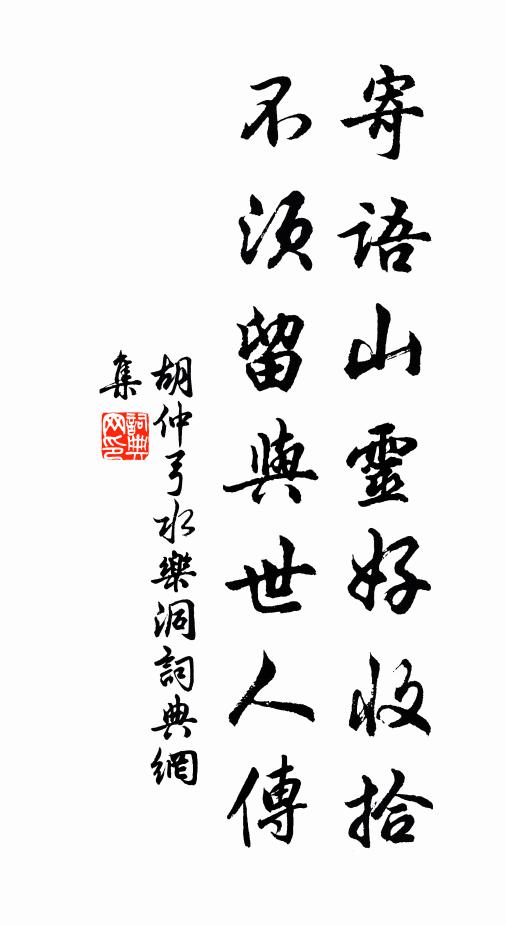 寄語山靈好收拾
不須留與世人傳
胡仲弓水樂洞詞典網
集
詞典
网印